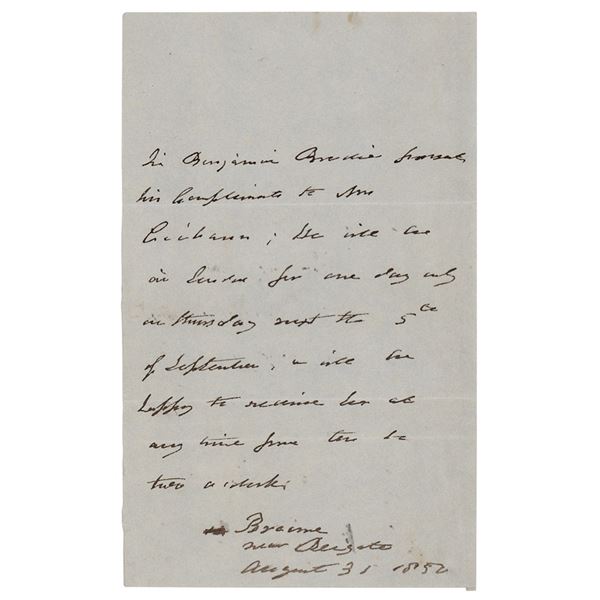 Sir Benjamin Brodie presents
his Compliments to Mrs
; He will be
in London for one day only
on Thursday next the 5th
of September; & will be
happy to receive her at
any time from ten to
two o'clock.
Broome
near Reigate
August 31 1850